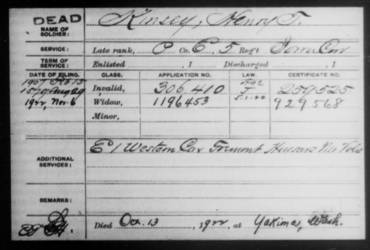 DEAD
NAME OF SOLDIER: Kinsey, Henry T.
SERVICE: Late rank, P Co. E, 5 Reg't Iowa Cav
TERM OF SERVICE: Enlisted , 1 Discharged , 1
DATE OF FILING. CLASS. APPLICATION NO. LAW. CERTIFICATE NO.
1907
1879 Aug 29 Invalid, 306.410 259.525
1922, Nov 6 Widow, 1196453 929568
Minor,
ADDITIONAL SERVICES: E 1 Western Cav Fremont Hussars Mo Vols
REMARKS:
Died Oct. 13, 1922, at Yakima, Wash.